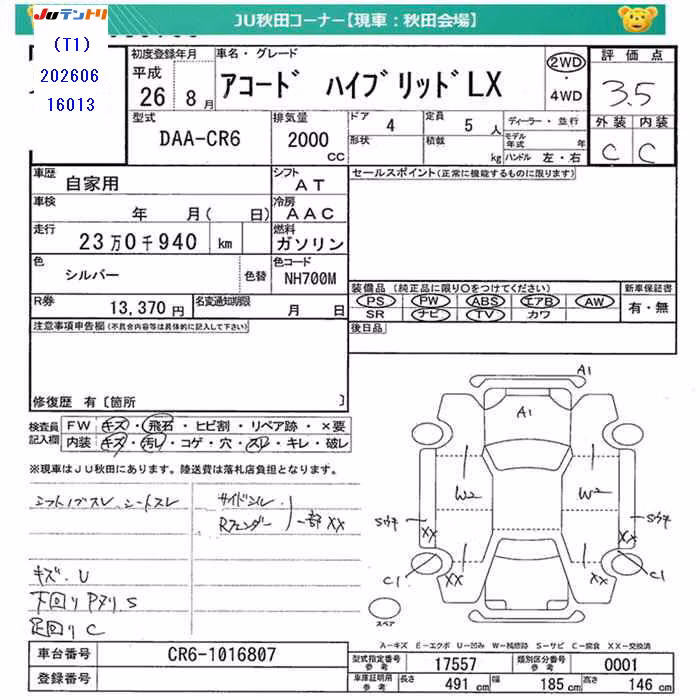 JUテントリ
JU秋田コーナー【現車:秋田会場】
(T1)
202606
16013
初度登録年月
平成
26 8月
車名・グレード
アコード ハイブリッド LX
2WD
・
4WD
評価点
3.5
外装 内装
C C
型式
DAA-CR6
排気量
2000
CC
ドア 4
形状
定員 5 人
積載 kg
ディーラー・並行
モデル年式 年
ハンドル 左・右
車歴
自家用
シフト
AT
車検
年 月( 日)
冷房
AAC
走行
23万0千940 km
燃料
ガソリン
色
シルバー
色替
色コード
NH700M
R券
13,370 円
名変通知期限
月 日
セールスポイント(正常に機能するものに限ります)
装備品 (純正品に限り○をつけてください)
PS PW ABS エアB AW
SR ナビ TV カワ
新車保証書
有・無
後日品
注意事項申告欄(不具合内容等は具体的に記入して下さい)
修復歴 有〔箇所 〕
検査員記入欄
FW キズ・飛石・ヒビ割・リペア跡・×要
内装 キズ・汚レ・コゲ・穴・スレ・キレ・破レ
※現車はJU秋田にあります。陸送費は落札店負担となります。
シフトノブスレ、シートスレ
サイドシル
Rフェンダー
一部XX
キズ.U
下回りPヌリS
足回りC
A1
A1
W2
W2
Sウチ
XX
Sウチ
XX
C1
XX
XX
C1
スペア
A-キズ E-エクボ U-凹み W-補修跡 S-サビ C-腐食 XX-交換済
車台番号
CR6-1016807
登録番号
型式指定番号
参考
17557
類別区分番号
参考
0001
車庫証明用
参考
長さ
491 cm
幅
185 cm
高さ
146 cm